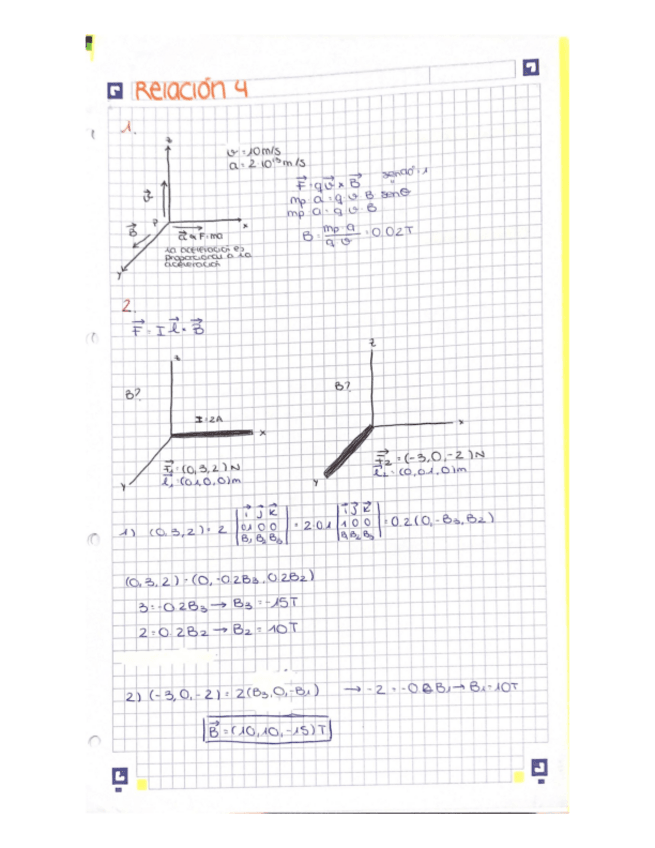 Relación 4
1.
v = 10 m/s
a = 2·10¹³ m/s
z
v⃗
B⃗
P
x
y
a⃗ F=ma
la aceleración es
proporcional a la
aceleración
F⃗ = q v⃗ × B⃗
mp a = q v B senθ
mp a = q v · B
B = mp a / q v = 0.02T
2.
F⃗ = I l⃗ × B⃗
z
B?
I = 2A
x
y
F⃗₁ = (0,3,2) N
l⃗₁ = (0.1,0,0) m
z
B?
x
y
F⃗₂ = (-3,0,-2) N
l⃗₂ = (0,0.1,0) m
1) (0,3,2) = 2 | i⃗ j⃗ k⃗ | 0.1 0 0 | B₁ B₂ B₃ | = 2·0.1 | i⃗ j⃗ k⃗ | 1 0 0 | B₁ B₂ B₃ | = 0.2(0, -B₃, B₂)
(0,3,2) = (0, -0.2B₃, 0.2B₂)
3 = -0.2B₃ → B₃ = -15T
2 = 0.2B₂ → B₂ = 10T
2) (-3,0,-2) = 2(B₃,0,-B₁) → -2 = -0.2B₁ → B₁ = 10T
B⃗ = (10,10,-15) T